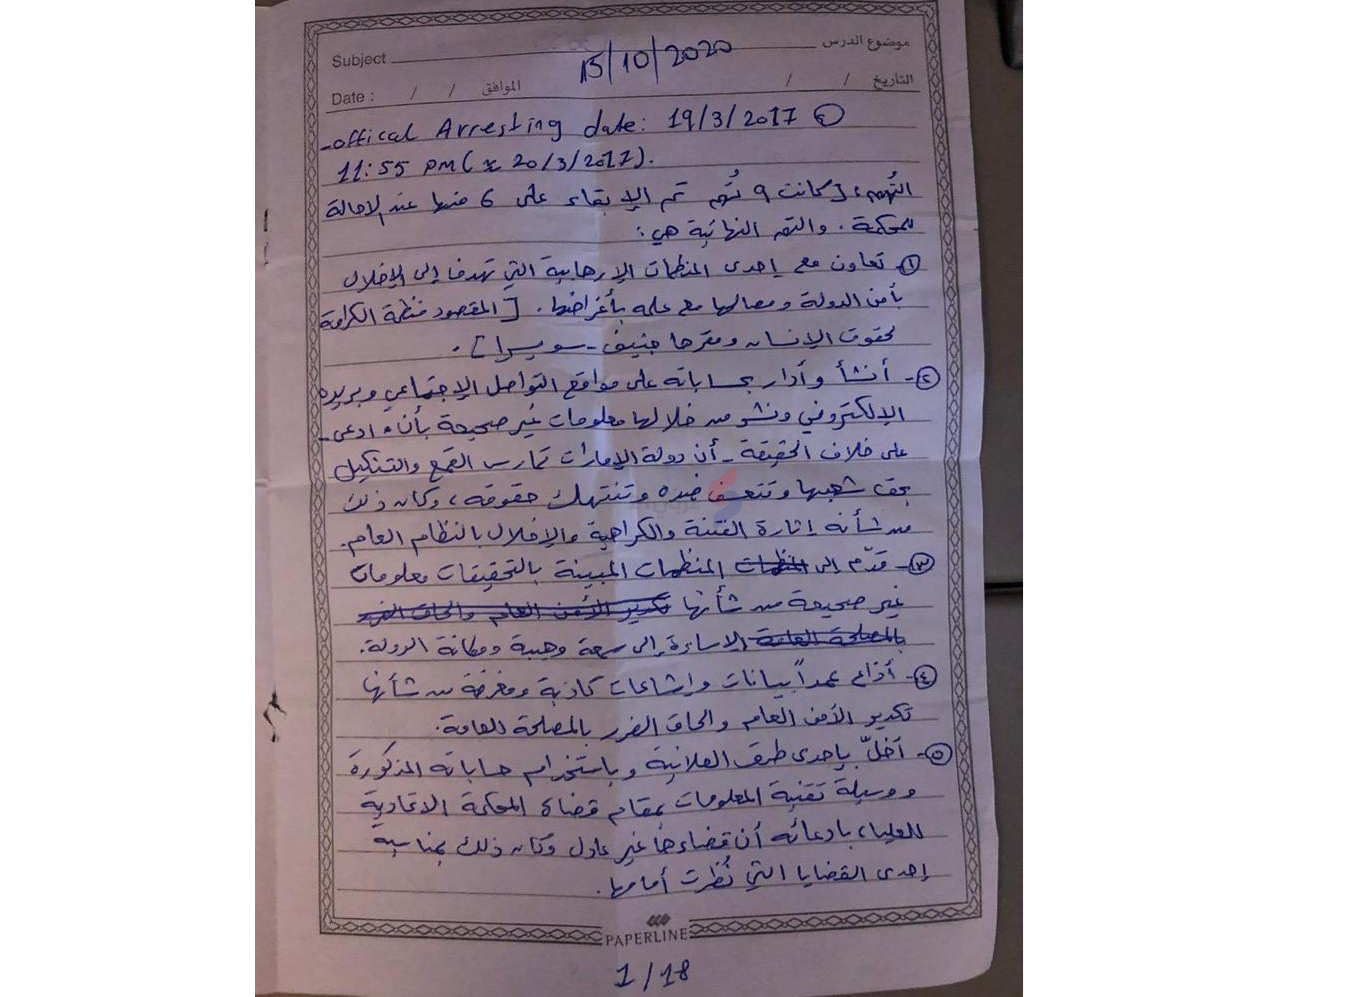 Subject موضوع الدرس
15/10/2020
Date : / / الموافق / / التاريخ
-offical Arresting date: 19/3/2017 @
11:55 PM (≈ 20/3/2017).
التُهم: [كانت 9 تُهم تم الإبقاء على 6 منها عند الإحالة
للمحكمة. والتهم النهائية هي:
١- تعاون مع إحدى المنظمات الإرهابية التي تهدف إلى الإخلال
بأمن الدولة ومصالحها مع علمه بأغراضها. [المقصود منظمة الكرامة
لحقوق الإنسان ومقرها جنيف - سويسرا].
٢- أنشأ وأدار حساباته على مواقع التواصل الإجتماعي وبريده
الإلكتروني ونشر من خلالها معلومات غير صحيحة بأن ادعى -
على خلاف الحقيقة - أن دولة الإمارات تمارس القمع والتنكيل
بحق شعبها وتتعسف ضده وتنتهك حقوقه، وكان ذلك
من شأنه إثارة الفتنة والكراهية والإخلال بالنظام العام.
٣- قدّم إلى المنظمات المنظمات المبينة بالتحقيقات معلومات
غير صحيحة من شأنها تكدير الأمن العام والحاق الضرر
بالمصلحة العامة الإساءة إلى سمعة وهيبة ومكانة الدولة.
٤- أذاع عمداً بيانات وإشاعات كاذبة ومغرضة من شأنها
تكدير الأمن العام والحاق الضرر بالمصلحة العامة.
٥- أخلّ بإحدى طرق العلانية وباستخدام حساباته المذكورة
ووسيلة تقنية المعلومات بمقام قضاة المحكمة الاتحادية
العليا، بادعائه أن قضاءها غير عادل وكان ذلك بمناسبة
إحدى القضايا التي نُظرت أمامها.
PAPERLINE
1/18